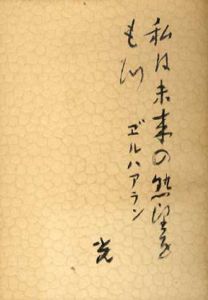 私は未来の熱望を
もつ
ヹルハアラン
光